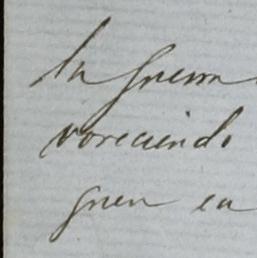 la guerra
voreciendo
guen en